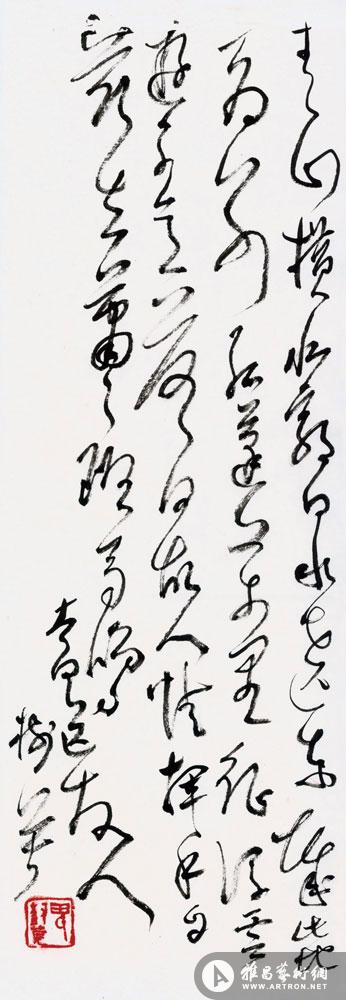 青山横北郭白水遶东城此地
一为别孤蓬万里征浮雲
遊子意落日故人情揮手自
兹去蕭々班馬鳴
李白送友人
雅昌藝術網
WWW.ARTRON.NET